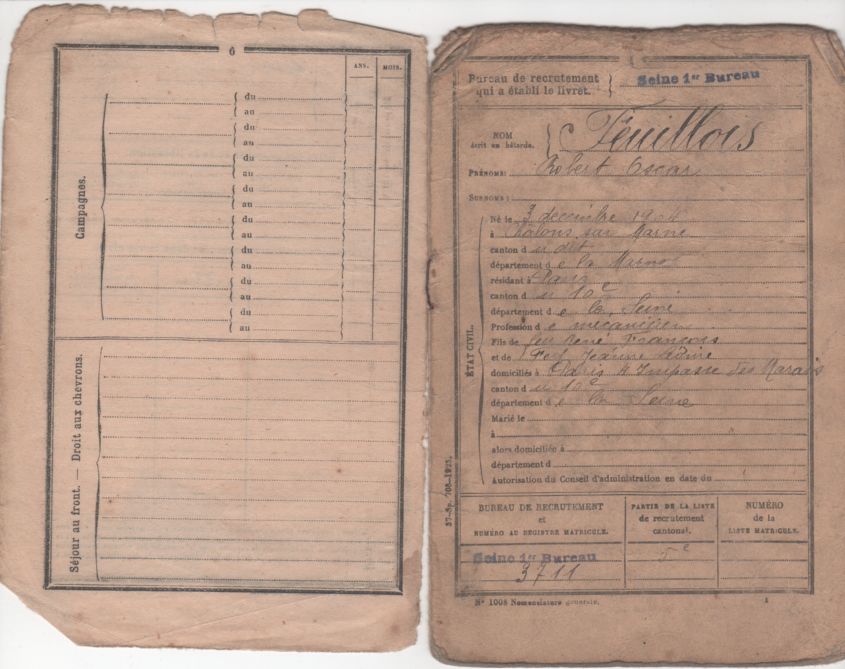 6
ANS.
MOIS.
Campagnes.
du
au
du
au
du
au
du
au
du
au
du
au
du
au
du
au
Séjour au front. — Droit aux chevrons.
Bureau de recrutement
qui a établi le livret.
Seine 1er Bureau
NOM
écrit en bâtarde.
Feuillois
PRÉNOMS: Robert Oscar
SURNOMS:
ÉTAT CIVIL.
Né le 3 décembre 1904
à Châlons sur Marne
canton du dit
département de la Marne
résidant à Paris
canton du 10e
département de la Seine
Profession de mécanicien
Fils de feu René François
et de Jeanne
domiciliés à Paris 4 Impasse des Marais
canton du 10e
département de la Seine
Marié le
à
alors domiciliée à
département d
Autorisation du Conseil d'administration en date du
BUREAU DE RECRUTEMENT
et
NUMÉRO AU REGISTRE MATRICULE.
PARTIE DE LA LISTE
de recrutement
cantonal.
NUMÉRO
de la
LISTE MATRICULE.
Seine 1er Bureau
3711
5e
N° 1008 Nomenclature générale.
1